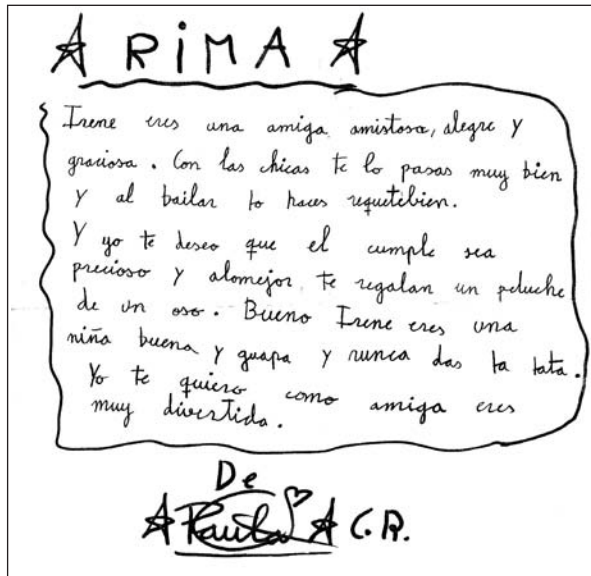 RiMA
Irene eres una amiga amistosa, alegre y
graciosa. Con las chicas te lo pasas muy bien
y al bailar lo haces requetebien.
Y yo te deseo que el cumple sea
precioso y alomejor te regalan un peluche
de un oso. Bueno Irene eres una
niña buena y guapa y nunca das la lata.
Yo te quiero como amiga eres
muy divertida.
De
Paula C.R.